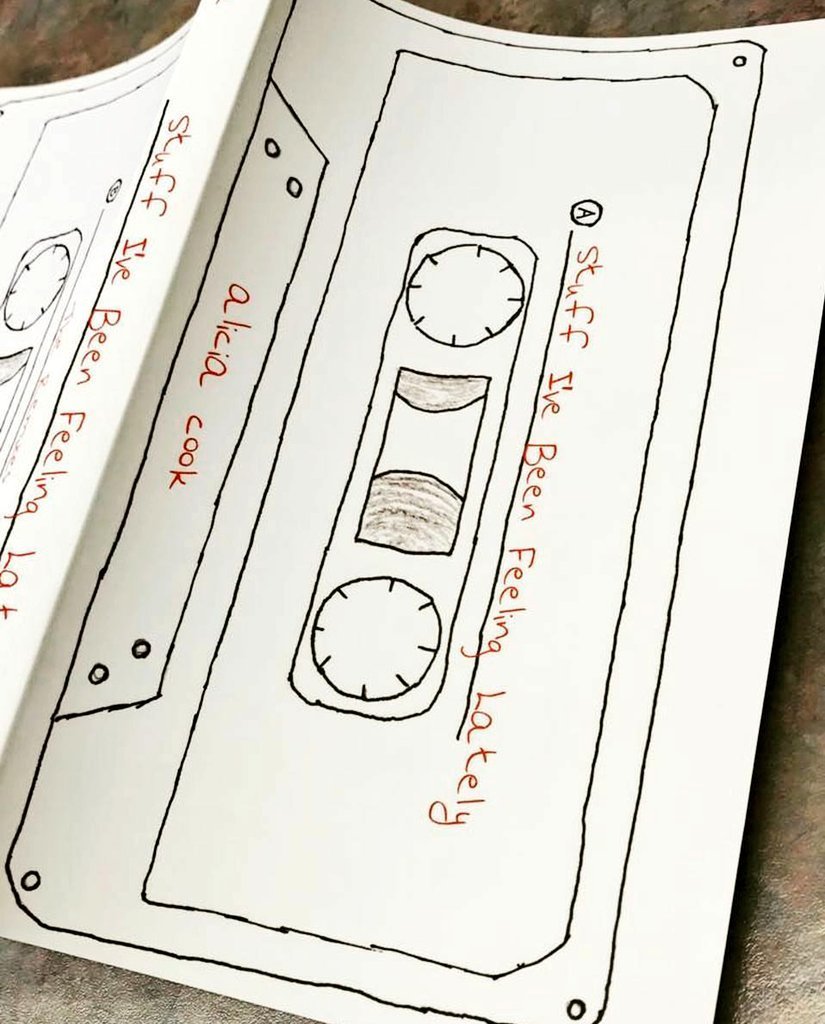 Ⓐ Stuff I've Been Feeling Lately
alicia cook
Stuff I've Been Feeling Lat
Ⓑ